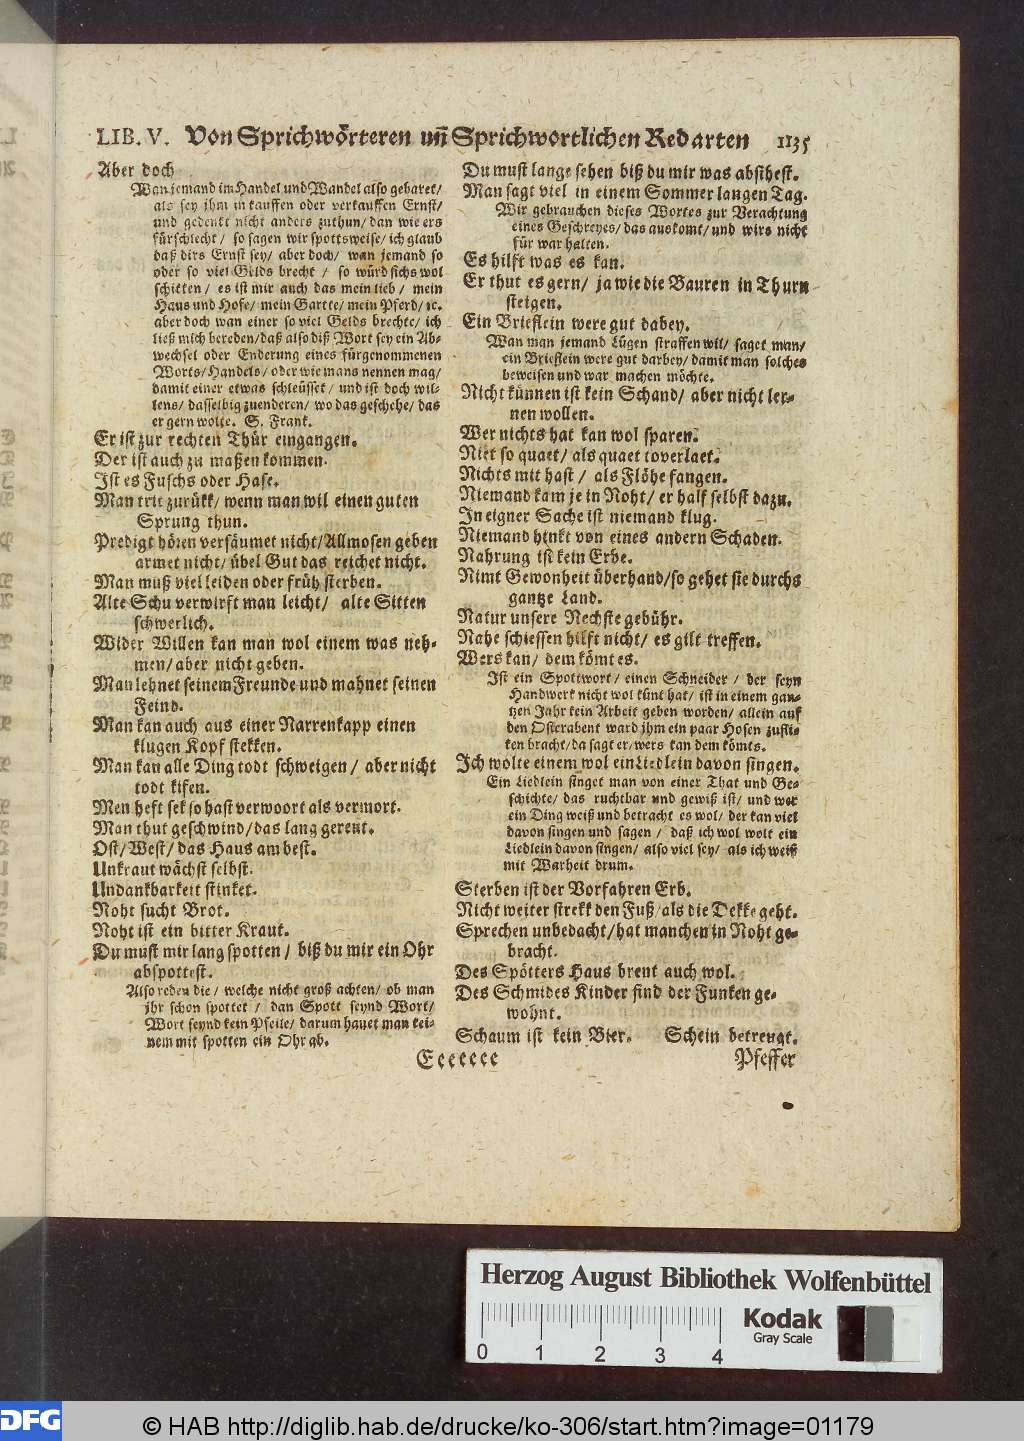 LIB. V. Von Sprichwörteren uñ Sprichwortlichen Redarten 1135
Aber doch
Wan jemand im Handel und Wandel also gebaret/
als sey jhm in kauffen oder verkauffen Ernst/
und gedenkt nicht anders zuthun/ dan wie ers
fürschlecht/ so sagen wir spottsweise/ ich glaub
daß dirs Ernst sey/ aber doch/ wan jemand so
oder so viel Gelds brecht/ so würd sichs wol
schikken/ es ist mir auch das mein lieb/ mein
Haus und Hofe/ mein Gartte/ mein Pferd/ ꝛc.
aber doch wan einer so viel Gelds brechte/ ich
ließ mich bereden/ daß also diß Wort sey ein Ab-
wechsel oder Enderung eines fürgenommenen
Worts/ Handels/ oder wie mans nennen mag/
damit einer etwas schleüsset/ und ist doch wil-
lens/ dasselbig zuenderen/ wo das geschehe/ das
er gern wolte. S. Frank.
Er ist zur rechten Thür eingangen.
Der ist auch zu maßen kommen.
Ist es Fuschs oder Hase.
Man trit zurükk/ wenn man wil einen guten
Sprung thun.
Predigt hören versäumet nicht/ Allmosen geben
armet nicht/ übel Gut das reichet nicht.
Man muß viel leiden oder früh sterben.
Alte Schu verwirft man leicht/ alte Sitten
schwerlich.
Wider Willen kan man wol einem was neh-
men/ aber nicht geben.
Man lehnet seinem Freunde und mahnet seinen
Feind.
Man kan auch aus einer Narrenkapp einen
klugen Kopf stekken.
Man kan alle Ding todt schweigen/ aber nicht
todt kifen.
Men heft sek so hast verwoort als vermort.
Man thut geschwind/ das lang gereut.
Ost/ West/ das Haus am best.
Unkraut wächst selbst.
Undankbarkeit stinket.
Noht sucht Brot.
Noht ist ein bitter Kraut.
Du must mir lang spotten/ biß du mir ein Ohr
abspottest.
Also reden die/ welche nicht groß achten/ ob man
jhr schon spottet/ dan Spott seynd Wort/
Wort seynd kein Pfeile/ darum hauet man kei-
nem mit spotten ein Ohr ab.
Eeeeeee
Du must lange sehen biß du mir was absihest.
Man sagt viel in einem Sommer langen Tag.
Wir gebrauchen dieses Wortes zur Verachtung
eines Geschreyes/ das auskomt/ und wirs nicht
für war halten.
Es hilft was es kan.
Er thut es gern/ ja wie die Bauren in Thurn
steigen.
Ein Brieflein were gut dabey.
Wan man jemand Lügen straffen wil/ saget man/
ein Brieflein were gut darbey/ damit man solches
beweisen und war machen möchte.
Nicht künnen ist kein Schand/ aber nicht ler-
nen wollen.
Wer nichts hat kan wol sparen.
Niet so quaet/ als quaet toverlaet.
Nichts mit hast/ als Flöhe fangen.
Niemand kam je in Noht/ er half selbst dazu.
In eigner Sache ist niemand klug.
Niemand hinkt von eines andern Schaden.
Nahrung ist kein Erbe.
Nimt Gewonheit überhand/ so gehet sie durchs
gantze Land.
Natur unsere Nechste gebühr.
Nahe schiessen hilft nicht/ es gilt treffen.
Wers kan/ dem kömt es.
Ist ein Spottwort/ einen Schneider/ der seyn
Handwerk nicht wol künt hat/ ist in einem gan-
tzen Jahr kein Arbeit geben worden/ allein auf
den Osterabent ward jhm ein paar Hosen zufli-
ken bracht/ da sagt er/ wers kan dem kömts.
Ich wolte einem wol ein Liedlein davon singen.
Ein Liedlein singet man von einer That und Ge-
schichte/ das ruchtbar und gewiß ist/ und wer
ein Ding weiß und betracht es wol/ der kan viel
davon singen und sagen/ daß ich wol wolt ein
Liedlein davon singen/ also viel sey/ als ich weiß
mit Warheit drum.
Sterben ist der Vorfahren Erb.
Nicht weiter strekk den Fuß/ als die Dekke geht.
Sprechen unbedacht/ hat manchen in Noht ge-
bracht.
Des Spötters Haus brent auch wol.
Des Schmides Kinder sind der Funken ge-
wohnt.
Schaum ist kein Bier. Schein betreugt.
Pfeffer
Herzog August Bibliothek Wolfenbüttel
0 1 2 3 4
Kodak
Gray Scale
DFG
© HAB http://diglib.hab.de/drucke/ko-306/start.htm?image=01179